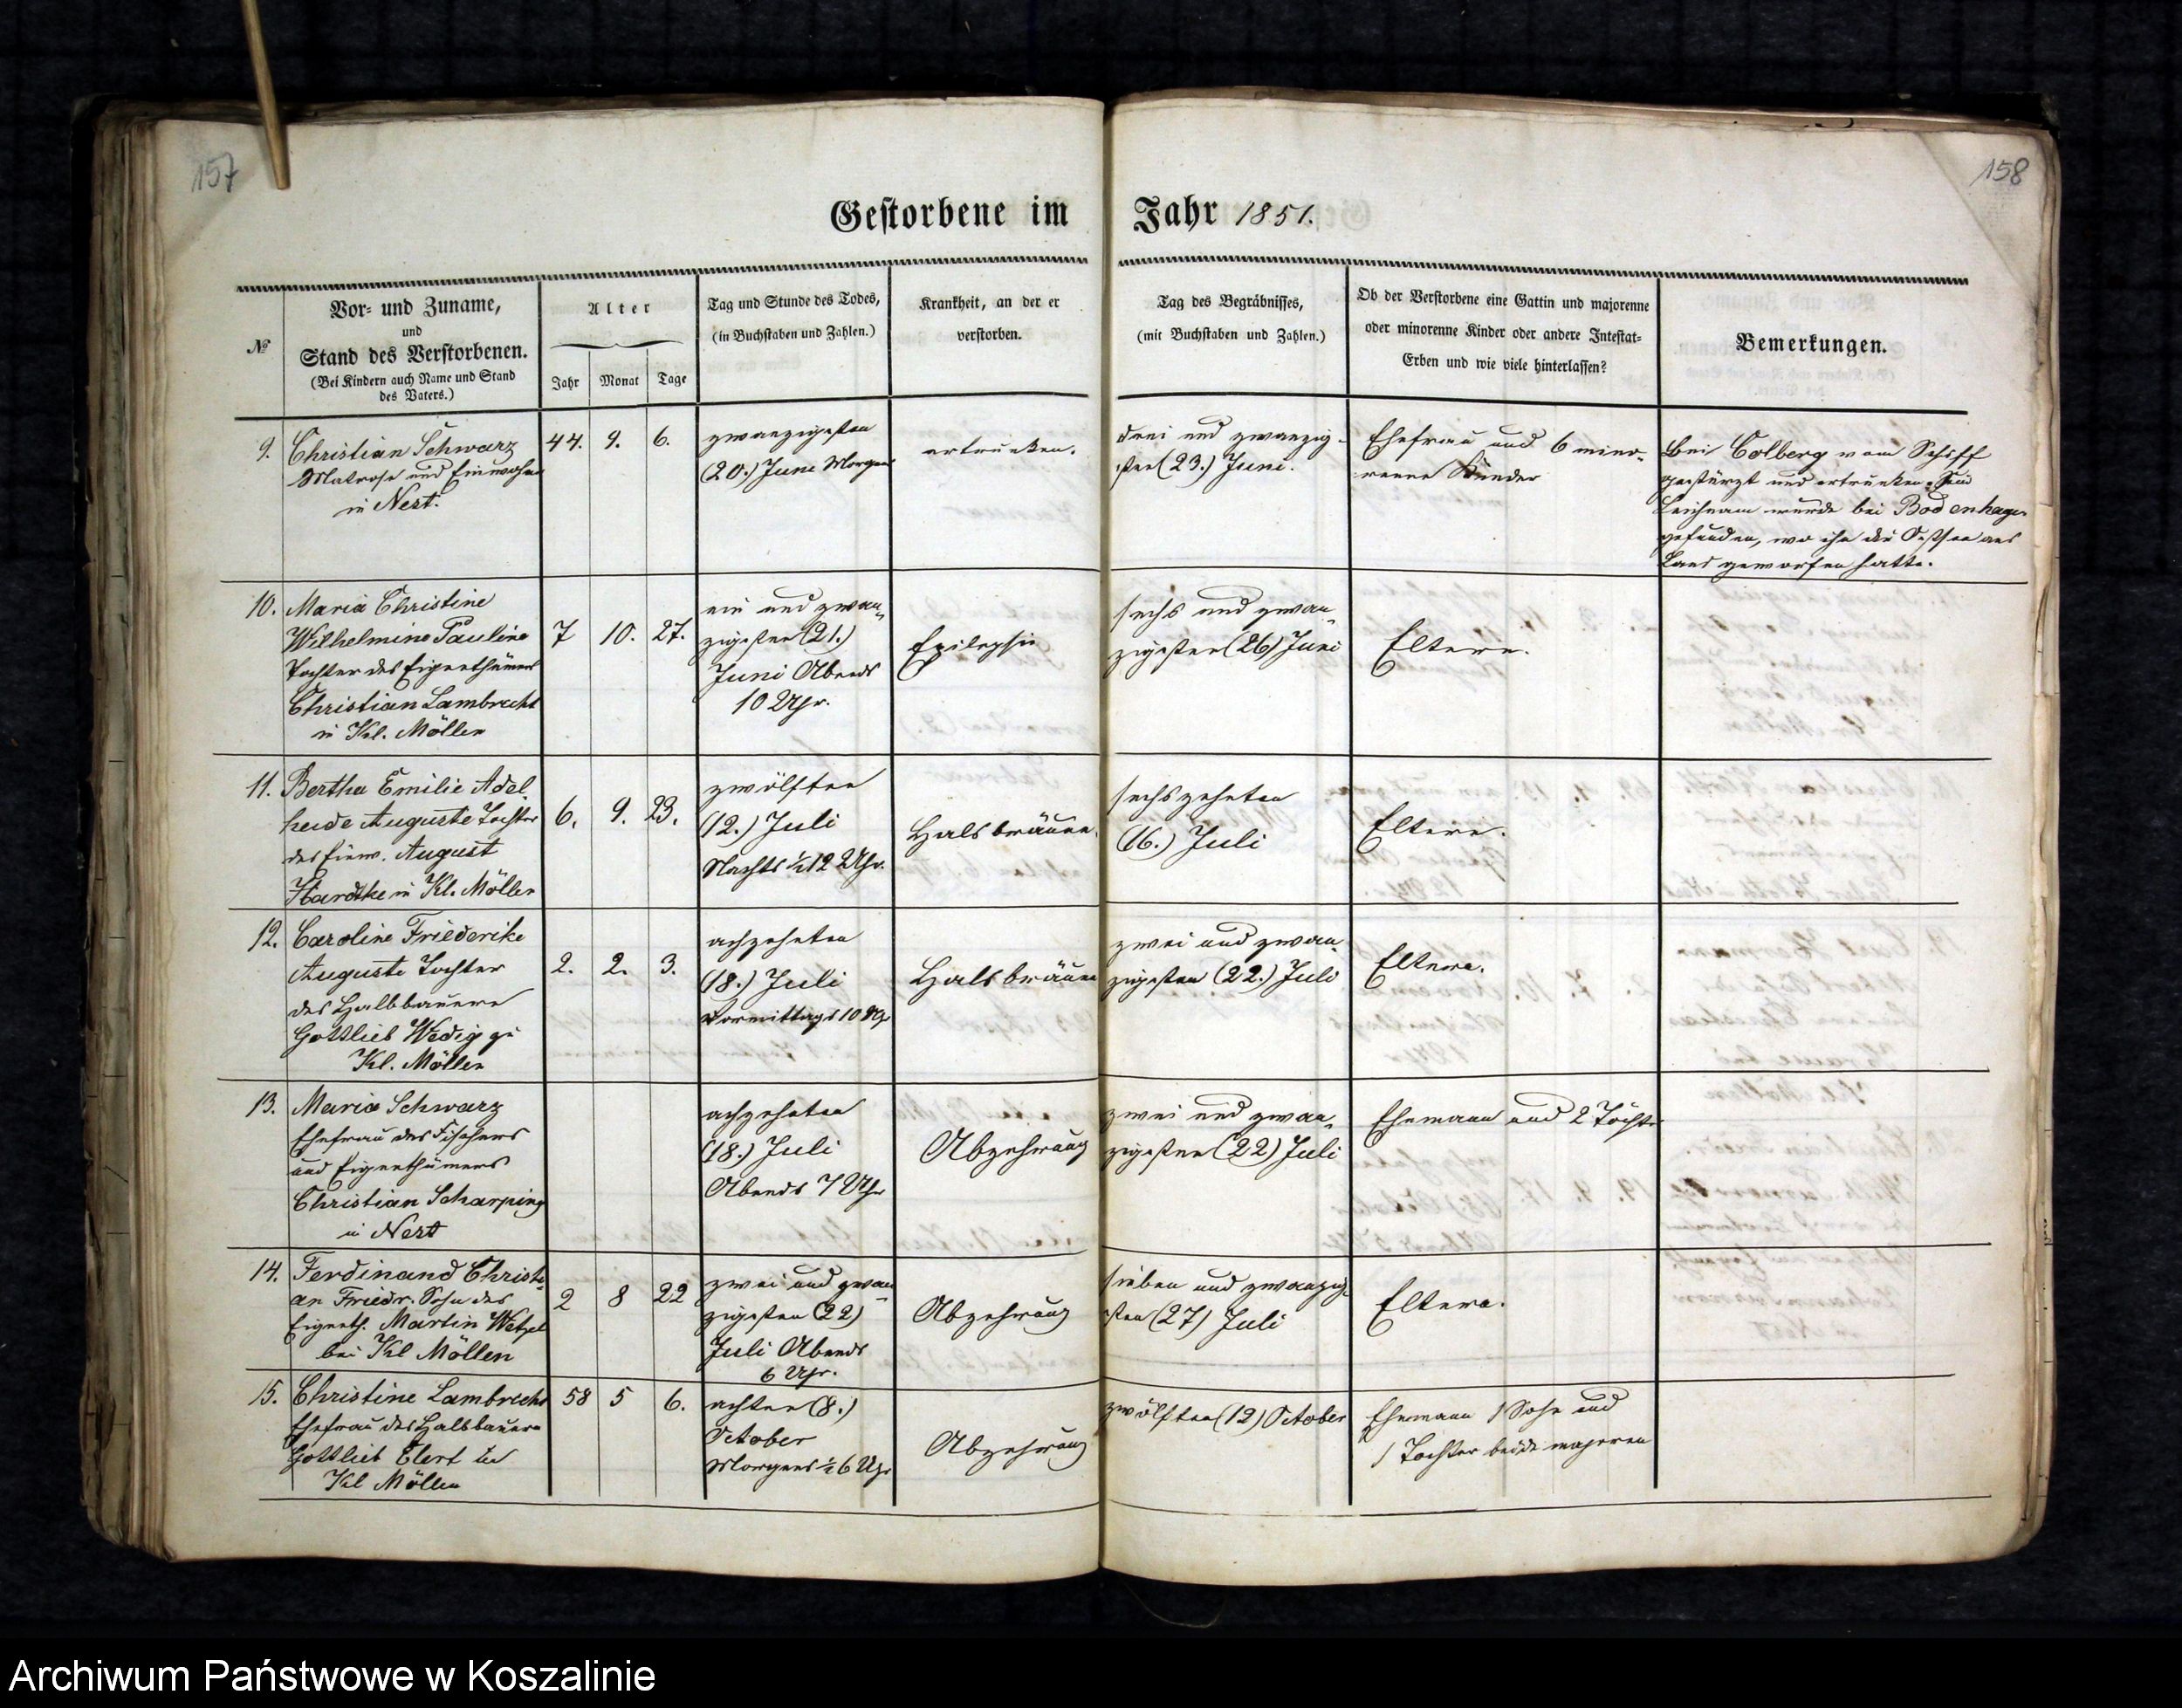 157
158
Gestorbene im Jahr 1851.
№
Vor- und Zuname,
und
Stand des Verstorbenen.
(Bei Kindern auch Name und Stand
des Vaters.)
Alter
Jahr Monat Tage
Tag und Stunde des Todes,
(in Buchstaben und Zahlen.)
Krankheit, an der er
verstorben.
Tag des Begräbnisses,
(mit Buchstaben und Zahlen.)
Ob der Verstorbene eine Gattin und majorenne
oder minorenne Kinder oder andere Intestat-
Erben und wie viele hinterlassen?
Bemerkungen.
9.
Christian Schwarz
Matrose und Einwohner
in Nest.
44. 9. 6.
zwanzigsten
(20.) Juni Morgens
ertrunken.
drei und zwanzig-
sten (23.) Juni.
Ehefrau und 6 mino-
renne Kinder
Bei Colberg vom Schiff
gestürzt und ertrunken. Sein
Leichnam wurde bei Bodenhagen
gefunden, wo ihn die Ostsee ans
Land geworfen hatte.
10.
Maria Christine
Wilhelmine Pauline
Tochter des Eigenthümers
Christian Lambrecht
in Kl. Möllen
7 10. 27.
ein und zwan-
zigsten (21.)
Juni Abends
10 Uhr.
Epilepsie
sechs und zwan-
zigsten (26) Juni
Eltern.
11.
Bertha Emilie Adel-
heide Auguste Tochter
des Einw. August
Hardtke in Kl. Möllen
6. 9. 23.
zwölften
(12.) Juli
Nachts ½12 Uhr.
Halsbräune.
sechszehnten
(16.) Juli
Eltern.
12.
Caroline Friederike
Auguste Tochter
des Halbbauern
Gottlieb Wedig zu
Kl. Möllen
2. 2. 3.
achzehnten
(18.) Juli
Vormittags 10 Uhr
Halsbräune
zwei und zwan-
zigsten (22.) Juli
Eltern.
13.
Maria Schwarz
Ehefrau des Fischers
und Eigenthümers
Christian Scharping
in Nest
achzehnten
(18.) Juli
Abends 7 Uhr
Abzehrung
zwei und zwan-
zigsten (22) Juli
Ehemann und 2 Töchter
14.
Ferdinand Christi-
an Friedr. Sohn des
Eigenth. Martin Wetzel
bei Kl Möllen
2 8 22
zwei und zwan-
zigsten (22)
Juli Abends
6 Uhr.
Abzehrung
sieben und zwanzig-
sten (27) Juli
Eltern.
15.
Christine Lambrecht
Ehefrau des Halbbauern
Gottlieb Elert in
Kl Möllen
58 5 6.
achten (8.)
October
Morgens ½6 Uhr
Abzehrung
zwölften (12) October
Ehemann 1 Sohn und
1 Tochter beide majoren
Archiwum Państwowe w Koszalinie